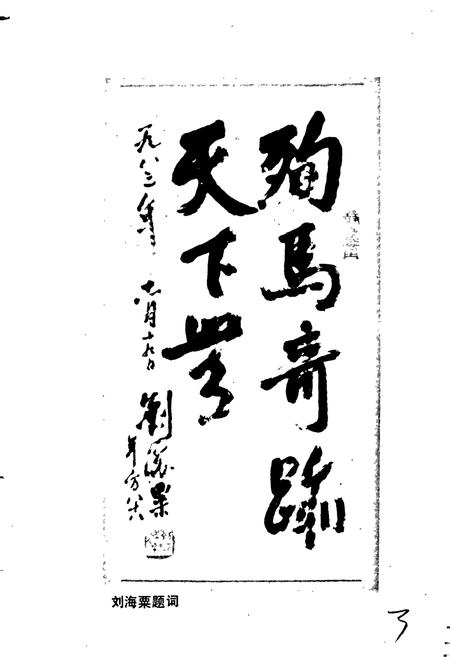 殉馬奇蹟
天下無
一九八三年九月十九日 劉海粟
年方八八
刘海粟题词